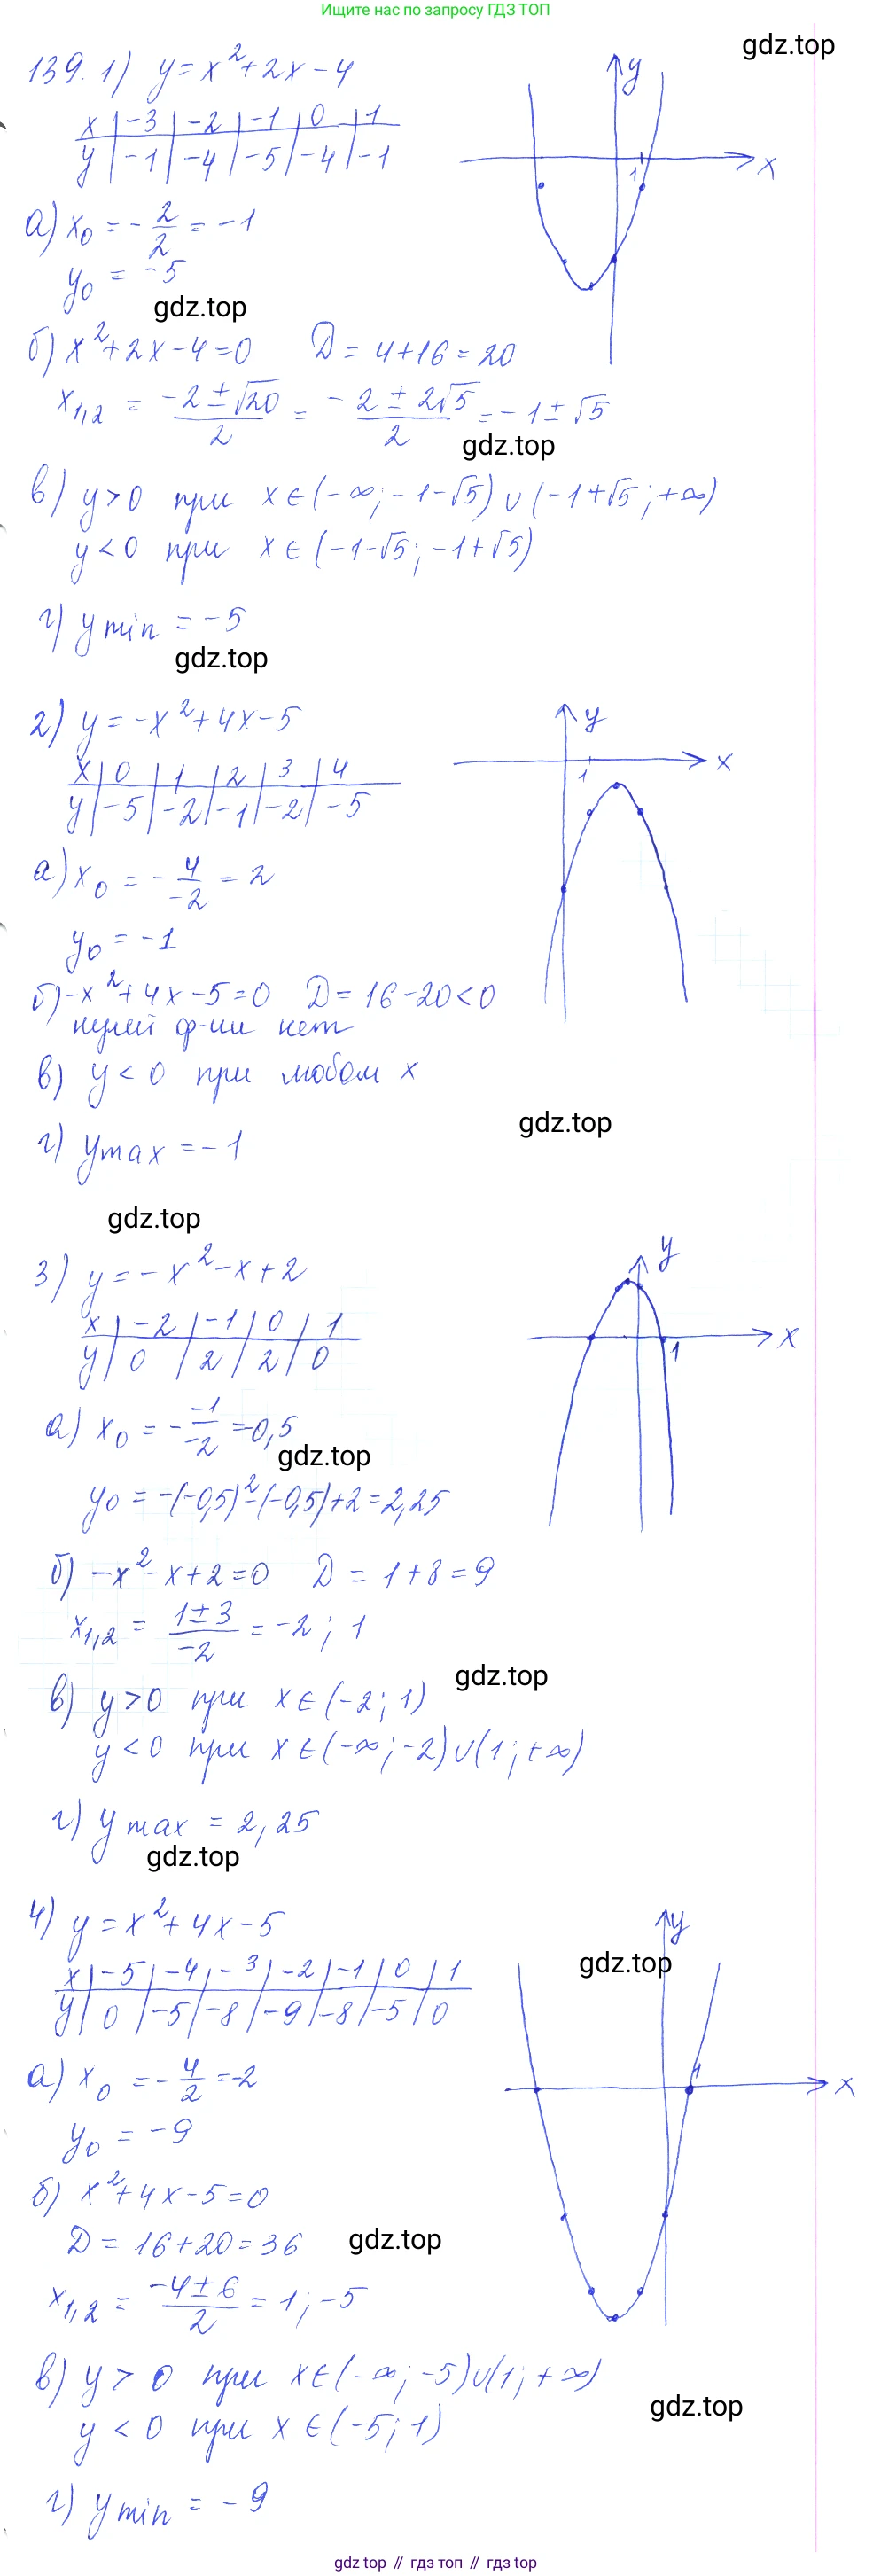 Ищите нас по запросу ГДЗ ТОП
gdz.top
139. 1) y = x² + 2x - 4
y
x | -3 | -2 | -1 | 0 | 1
y | -1 | -4 | -5 | -4 | -1
x
1
а) x₀ = - 2/2 = -1
y₀ = -5
gdz.top
б) x² + 2x - 4 = 0 D = 4 + 16 = 20
x₁,₂ = (-2 ± √20)/2 = (-2 ± 2√5)/2 = -1 ± √5
gdz.top
в) y > 0 при x ∈ (-∞; -1-√5) ∪ (-1+√5; +∞)
y < 0 при x ∈ (-1-√5; -1+√5)
г) y min = -5
gdz.top
2) y = -x² + 4x - 5
y
x | 0 | 1 | 2 | 3 | 4
y | -5 | -2 | -1 | -2 | -5
x
1
а) x₀ = - 4/-2 = 2
y₀ = -1
б) -x² + 4x - 5 = 0 D = 16 - 20 < 0
нулей ф-ии нет
в) y < 0 при любом x
gdz.top
г) y max = -1
gdz.top
3) y = -x² - x + 2
y
x | -2 | -1 | 0 | 1
y | 0 | 2 | 2 | 0
x
1
а) x₀ = - -1/-2 = -0,5
gdz.top
y₀ = -(-0,5)² - (-0,5) + 2 = 2,25
б) -x² - x + 2 = 0 D = 1 + 8 = 9
x₁,₂ = (1 ± 3)/-2 = -2; 1
gdz.top
в) y > 0 при x ∈ (-2; 1)
y < 0 при x ∈ (-∞; -2) ∪ (1; +∞)
г) y max = 2,25
gdz.top
4) y = x² + 4x - 5
y
gdz.top
x | -5 | -4 | -3 | -2 | -1 | 0 | 1
y | 0 | -5 | -8 | -9 | -8 | -5 | 0
1
x
а) x₀ = - 4/2 = -2
y₀ = -9
б) x² + 4x - 5 = 0
D = 16 + 20 = 36
gdz.top
x₁,₂ = (-4 ± 6)/2 = 1; -5
в) y > 0 при x ∈ (-∞; -5) ∪ (1; +∞)
gdz.top
y < 0 при x ∈ (-5; 1)
г) y min = -9
gdz top // гдз топ // gdz top